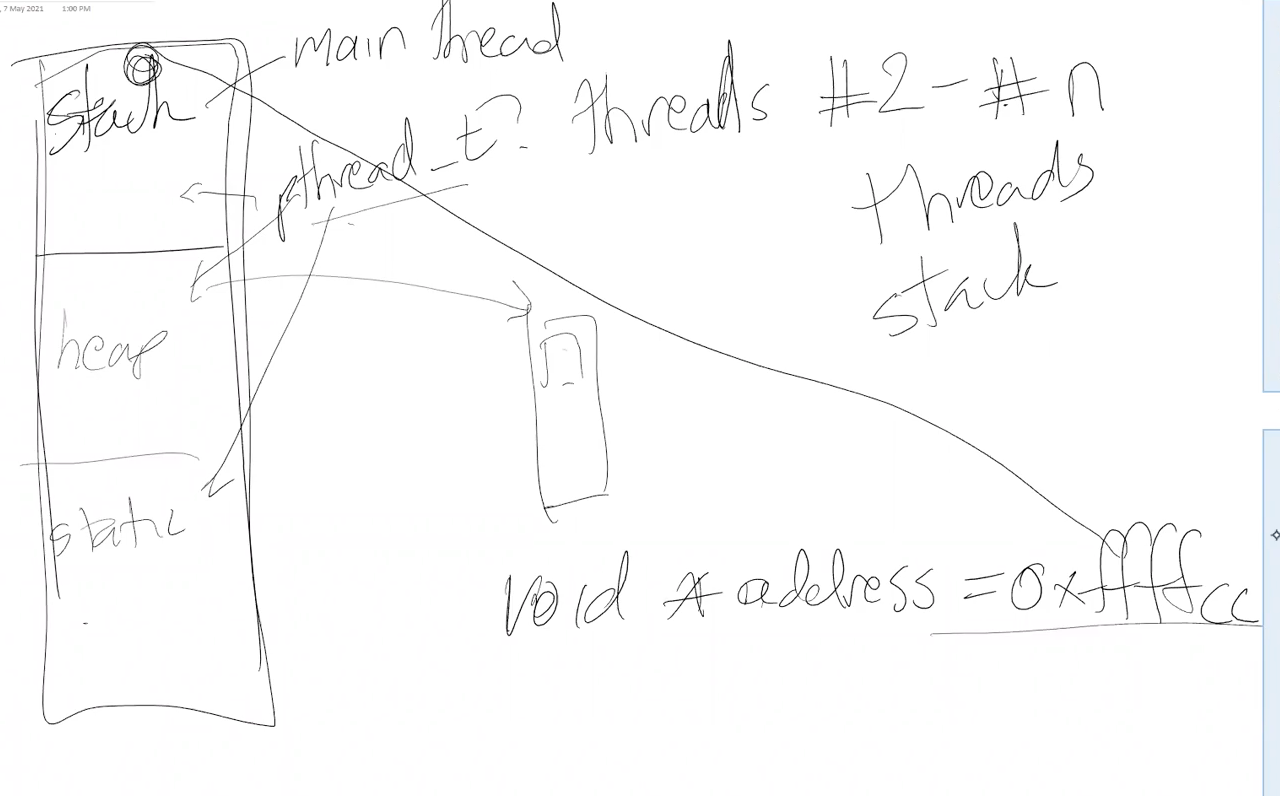 , 7 May 2021 1:00 PM
main thread
stack
threads #2 - #n
pthread_t?
threads
stack
heap
static
void * address = 0xffffcc